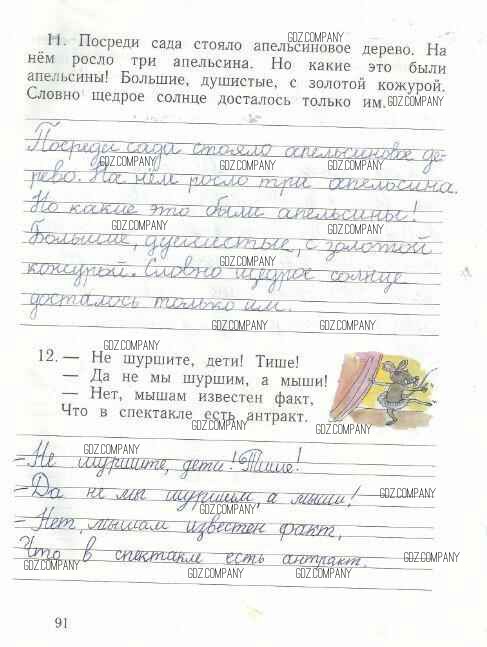 GDZ.COMPANY
11. Посреди сада стояло апельсиновое дерево. На
нём росло три апельсина. Но какие это были
апельсины! Большие, душистые, с золотой кожурой.
Словно щедрое солнце досталось только им. GDZ.COMPANY
Посреди сада стояло апельсиновое де-
GDZ.COMPANY GDZ.COMPANY GDZ.COMPANY
рево. На нём росло три апельсина.
Но какие это были апельсины!
GDZ.COMPANY GDZ.COMPANY
Большие, душистые, с золотой
GDZ.COMPANY
кожурой. Словно щедрое солнце
досталось только им.
GDZ.COMPANY GDZ.COMPANY
12. — Не шуршите, дети! Тише!
GDZ.COMPANY
— Да не мы шуршим, а мыши!
— Нет, мышам известен факт,
Что в спектакле есть антракт.
GDZ.COMPANY GDZ.COMPANY
GDZ.COMPANY
- Не шуршите, дети! Тише!
- Да не мы шуршим, а мыши! GDZ.COMPANY
GDZ.COMPANY
- Нет, мышам известен факт,
Что в спектакле есть антракт. GDZ.COMPANY
GDZ.COMPANY GDZ.COMPANY GDZ.COMPANY
91